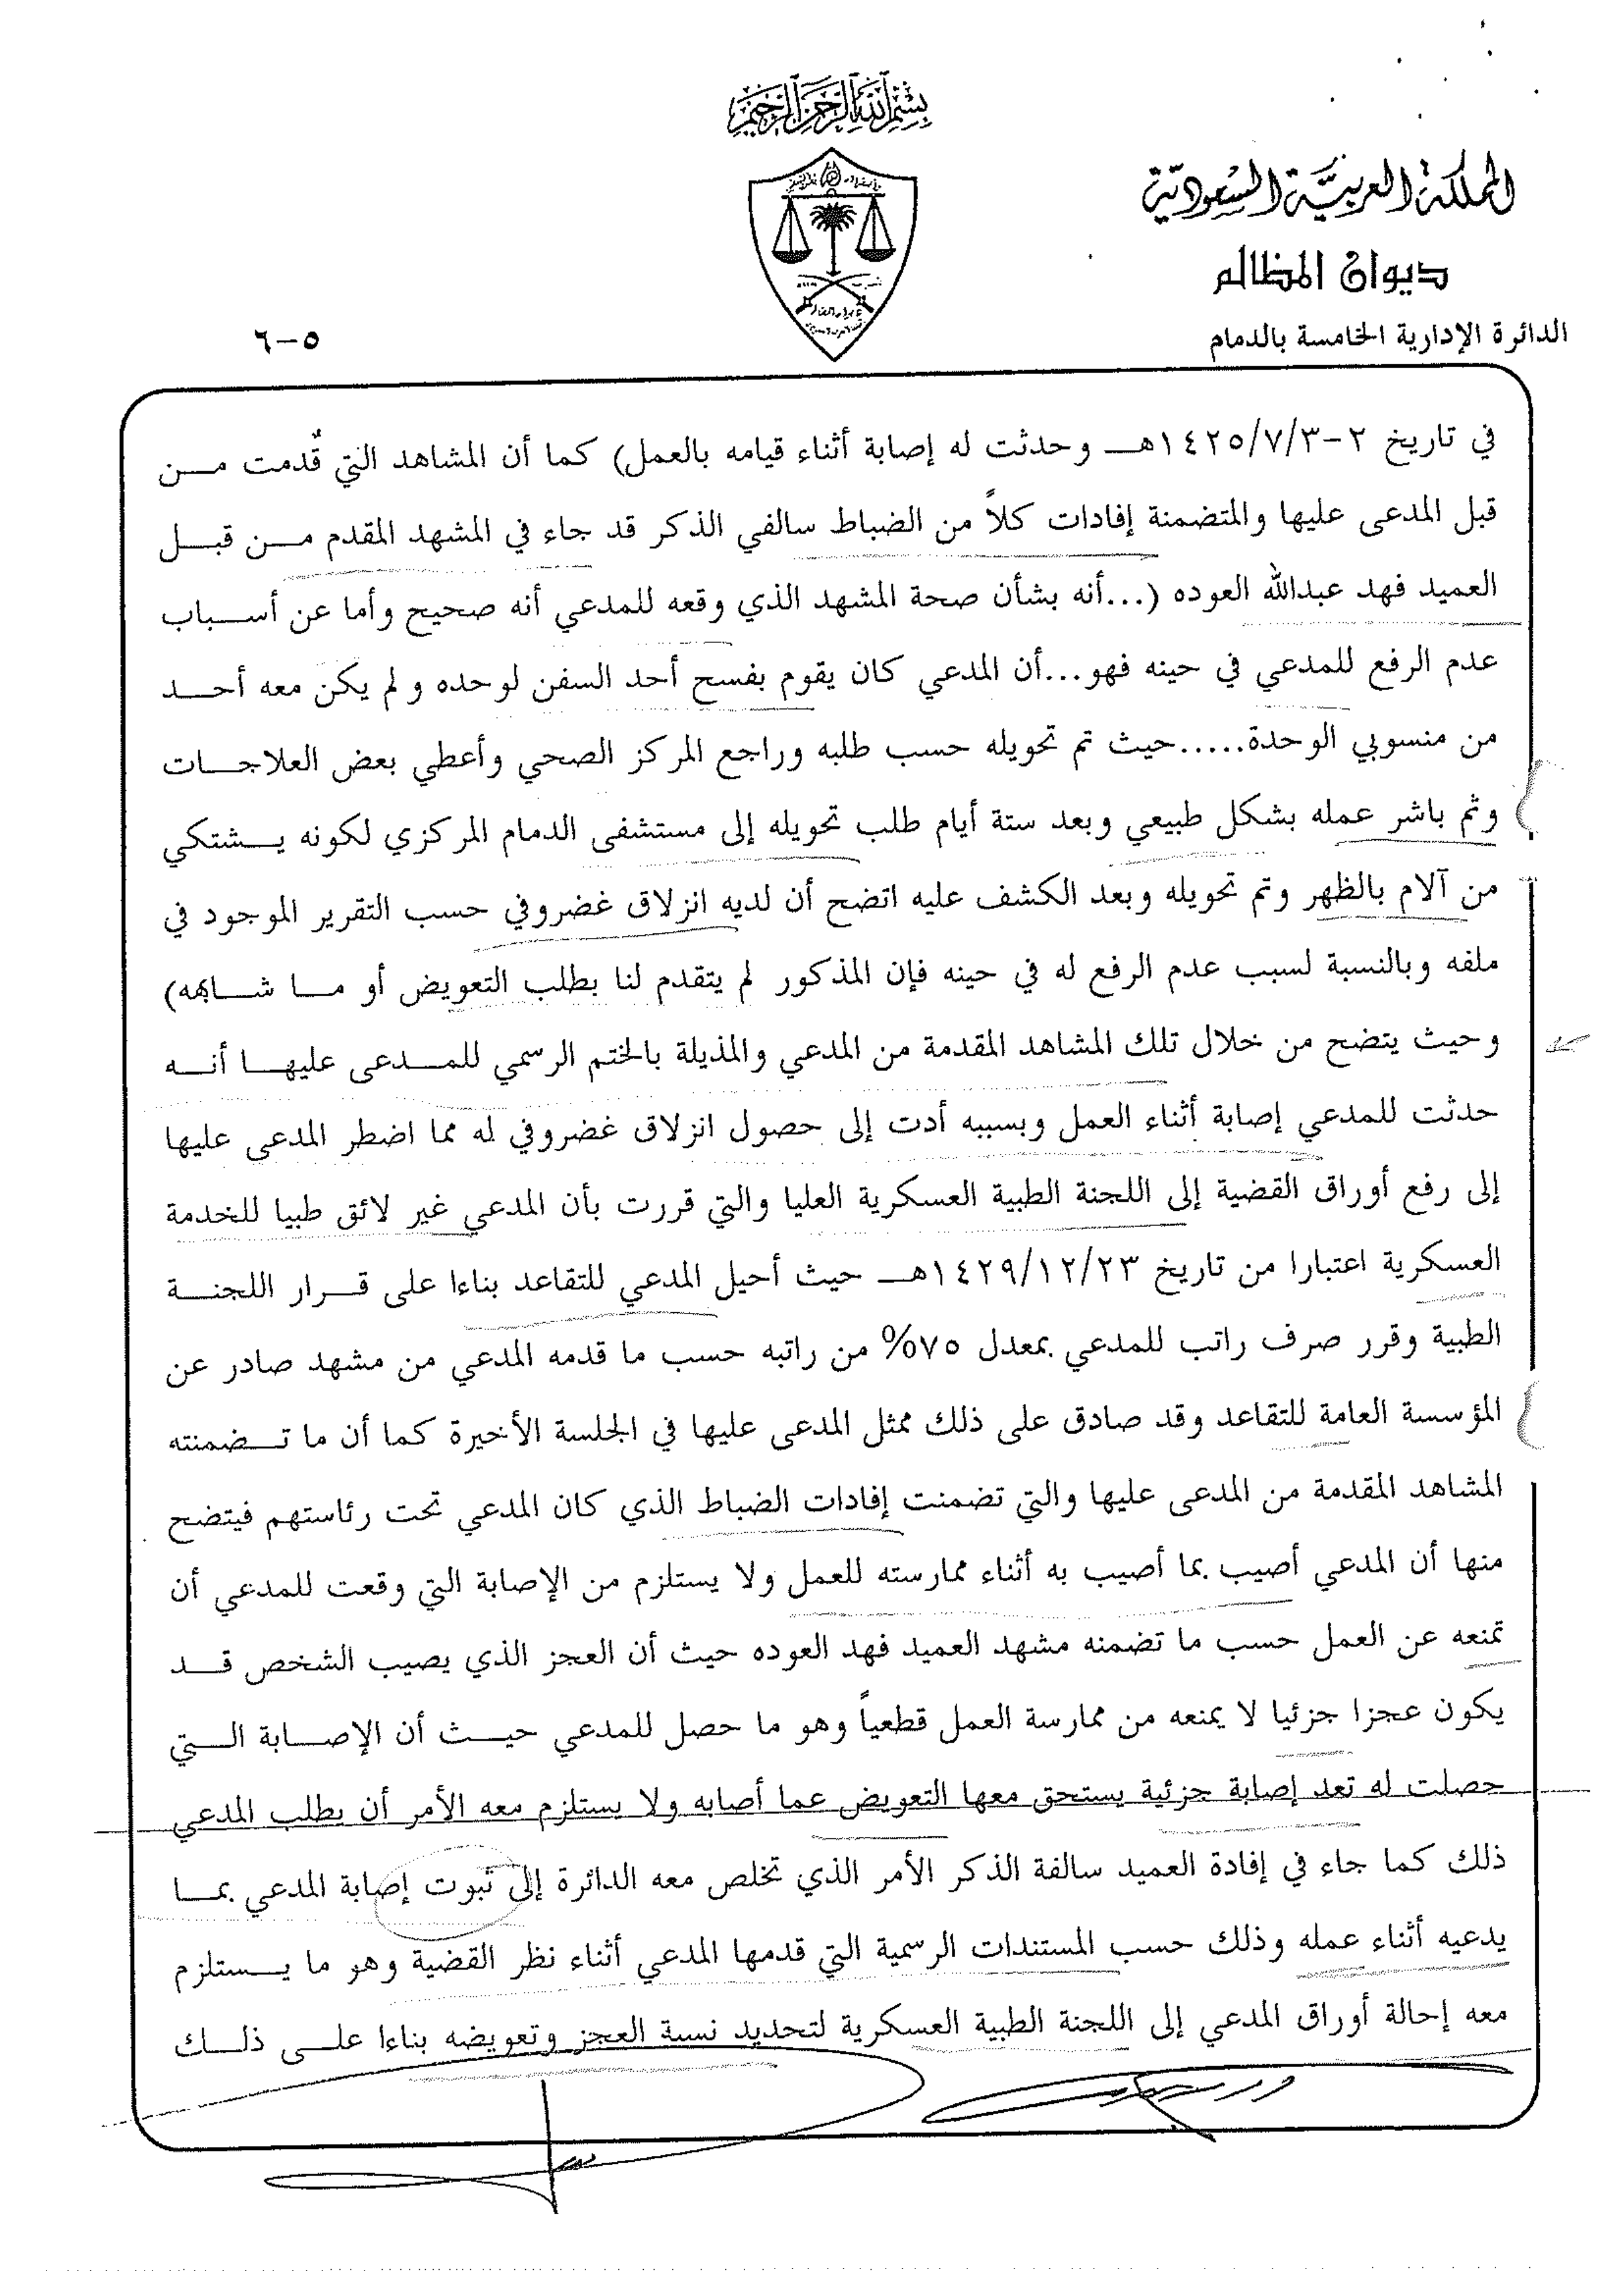 بسم الله الرحمن الرحيم
المملكة العربية السعودية
ديوان المظالم
الدائرة الإدارية الخامسة بالدمام
٥-٦
في تاريخ ٢-١٤٢٥/٧/٣هـ وحدثت له إصابة أثناء قيامه بالعمل) كما أن المشاهد التي قُدمت من
قبل المدعى عليها والمتضمنة إفادات كلاً من الضباط سالفي الذكر قد جاء في المشهد المقدم من قبل
العميد فهد عبدالله العوده (...أنه بشأن صحة المشهد الذي وقعه للمدعي أنه صحيح وأما عن أسباب
عدم الرفع للمدعي في حينه فهو...أن المدعي كان يقوم بفسح أحد السفن لوحده ولم يكن معه أحد
من منسوبي الوحدة.....حيث تم تحويله حسب طلبه وراجع المركز الصحي وأعطي بعض العلاجات
وثم باشر عمله بشكل طبيعي وبعد ستة أيام طلب تحويله إلى مستشفى الدمام المركزي لكونه يشتكي
من آلام بالظهر وتم تحويله وبعد الكشف عليه اتضح أن لديه انزلاق غضروفي حسب التقرير الموجود في
ملفه وبالنسبة لسبب عدم الرفع له في حينه فإن المذكور لم يتقدم لنا بطلب التعويض أو ما شابهه)
وحيث يتضح من خلال تلك المشاهد المقدمة من المدعي والمذيلة بالختم الرسمي للمدعى عليها أنه
حدثت للمدعي إصابة أثناء العمل وبسببه أدت إلى حصول انزلاق غضروفي له مما اضطر المدعى عليها
إلى رفع أوراق القضية إلى اللجنة الطبية العسكرية العليا والتي قررت بأن المدعي غير لائق طبيا للخدمة
العسكرية اعتبارا من تاريخ ١٤٢٩/١٢/٢٣هـ حيث أحيل المدعي للتقاعد بناءا على قرار اللجنة
الطبية وقرر صرف راتب للمدعي بمعدل ٧٥% من راتبه حسب ما قدمه المدعي من مشهد صادر عن
المؤسسة العامة للتقاعد وقد صادق على ذلك ممثل المدعى عليها في الجلسة الأخيرة كما أن ما تضمنته
المشاهد المقدمة من المدعى عليها والتي تضمنت إفادات الضباط الذي كان المدعي تحت رئاستهم فيتضح
منها أن المدعي أصيب بما أصيب به أثناء ممارسته للعمل ولا يستلزم من الإصابة التي وقعت للمدعي أن
تمنعه عن العمل حسب ما تضمنه مشهد العميد فهد العوده حيث أن العجز الذي يصيب الشخص قد
يكون عجزا جزئيا لا يمنعه من ممارسة العمل قطعياً وهو ما حصل للمدعي حيث أن الإصابة التي
حصلت له تعد إصابة جزئية يستحق معها التعويض عما أصابه ولا يستلزم معه الأمر أن يطلب المدعي
ذلك كما جاء في إفادة العميد سالفة الذكر الأمر الذي تخلص معه الدائرة إلى ثبوت إصابة المدعي بما
يدعيه أثناء عمله وذلك حسب المستندات الرسمية التي قدمها المدعي أثناء نظر القضية وهو ما يستلزم
معه إحالة أوراق المدعي إلى اللجنة الطبية العسكرية لتحديد نسبة العجز وتعويضه بناءا على ذلك